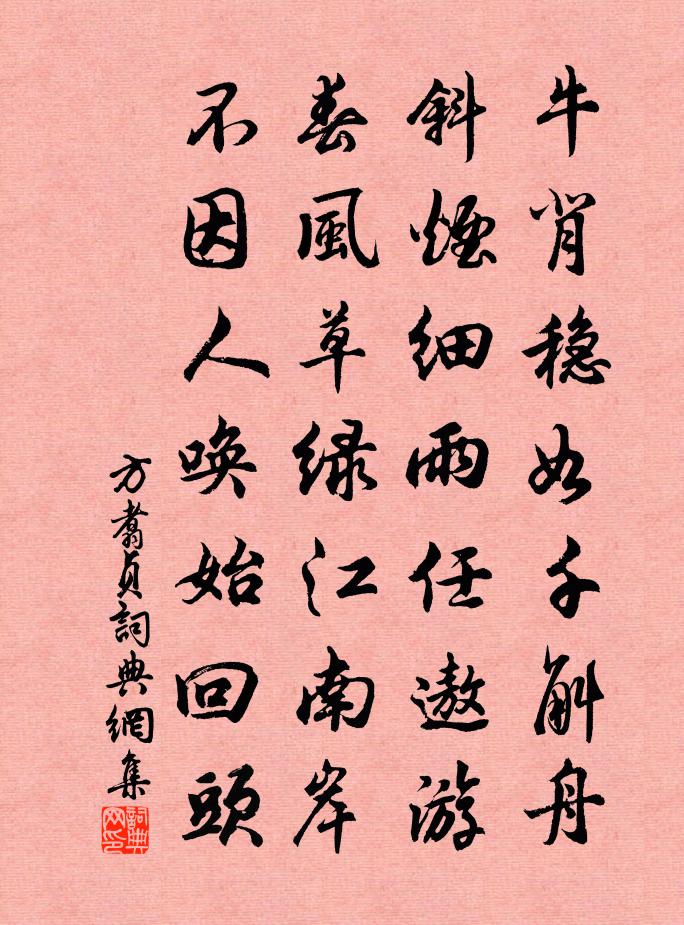 牛背稳如千斛舟
斜煙细雨任遨游
春風草绿江南岸
不因人唤始回頭
方翥貞詞典網集
詞典网印